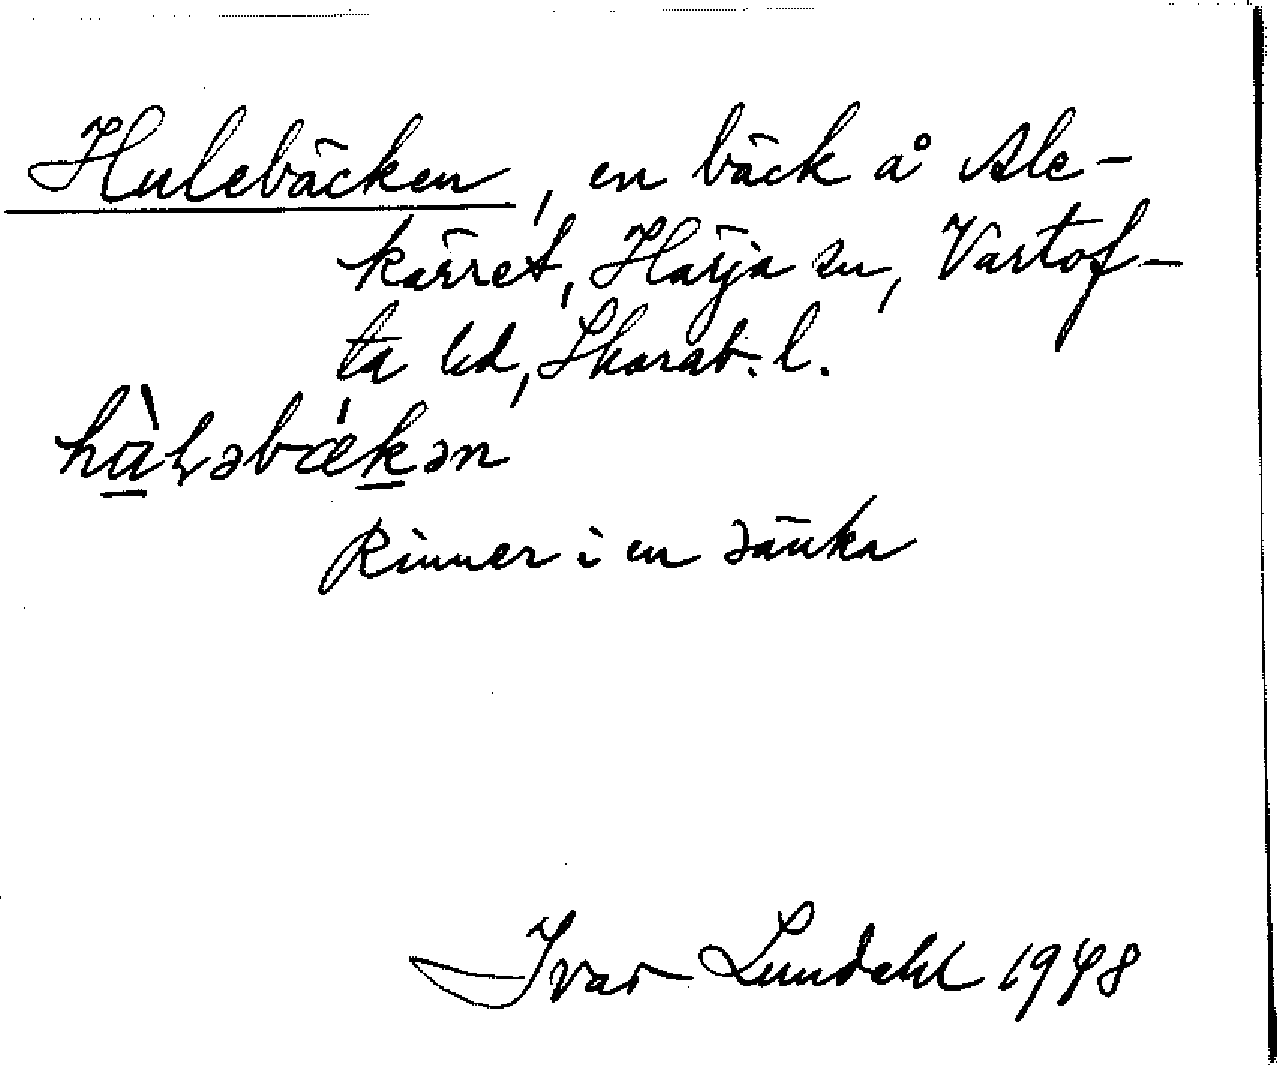 Hulebäcken, en bäck å Ale-
kärret, Härja sn, Vartof-
ta hd, Skarab. l.
hàɽəbǽkən
Rinner i en sänka
Ivar Lundahl 1948